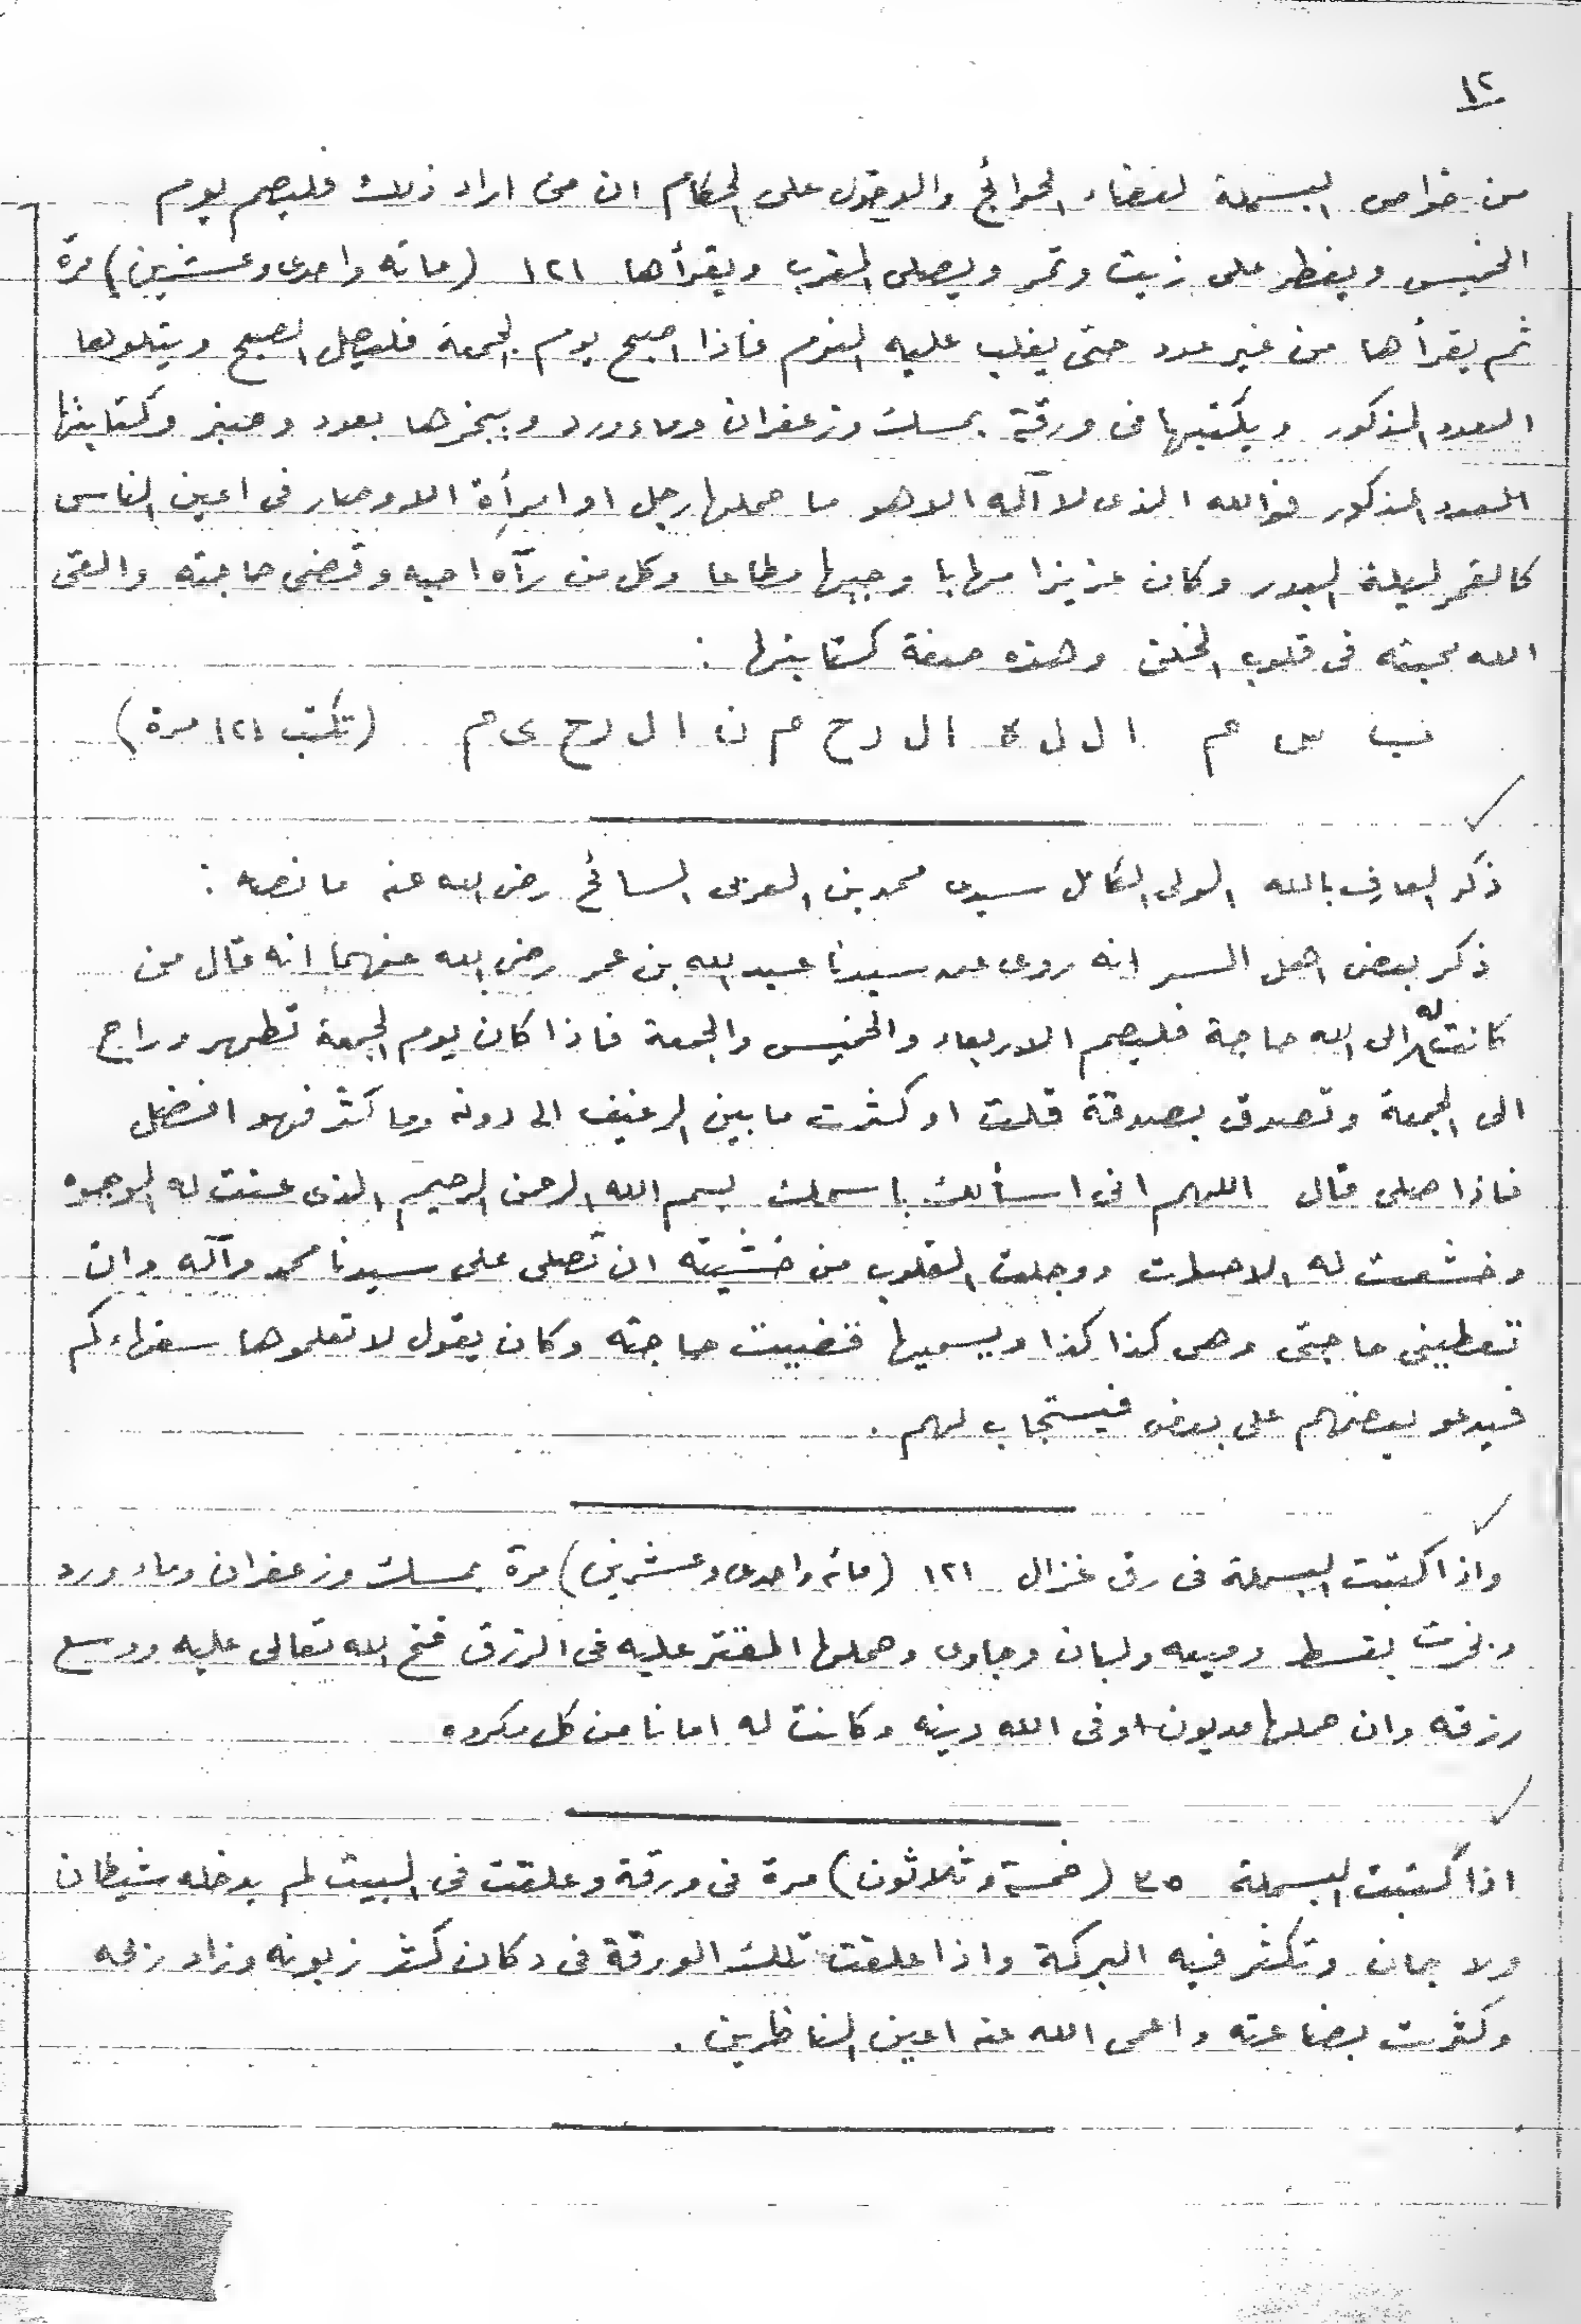 ١٢
من خواص البسملة لقضاء الحوائج والدخول على الحكام ان من اراد ذلك فليصم يوم
الخميس ويفطر على زيت وتمر ويصلى المغرب ويقرأها ١٢١ (مائه واحدى وعشرين) مرة
ثم يقرأها من غير عدد حتى يغلب عليه النوم فاذا اصبح يوم الجمعة فليصل الصبح ويتلوها
العدد المذكور ويكتبها فى ورقة بمسك وزعفران وماء ورد ويبخرها بعود وعنبر وكتابتها
العدد المذكور فوالله الذى لا آله الا هو ما حملها رجل او امرأة الا وصار فى اعين الناس
كالقمر ليلة البدر وكان عزيزا مهابا وجيها مطاعا وكل من رآه احبه وقضى حاجته والقى
الله محبته فى قلوب الخلق وهذه صفة كتابتها :
ب س م ا ل ل ه ا ل ر ح م ن ا ل ر ح ى م (تكتب ١٢١ مرة)
ذكر العارف بالله الولى الكامل سيدى محمد بن العربى السائح رضى الله عنه ما نصه :
ذكر بعض اهل السر انه روى عن سيدنا عبد الله بن عمر رضى الله عنهما انه قال من
كانت له الى الله حاجة فليصم الاربعاء والخميس والجمعة فاذا كان يوم الجمعة تطهر وراح
الى الجمعة وتصدق بصدقة قلت او كثرت ما بين الرغيف الى دونه وما كثر فهو افضل
فاذا صلى قال اللهم انى اسألك باسمك بسم الله الرحمن الرحيم الذى عنت له الوجوه
وخشعت له الاصوات ووجلت القلوب من خشيته ان تصلى على سيدنا محمد وآله وان
تعطينى حاجتى وهى كذا كذا ويسميها قضيت حاجته وكان يقول لا تعلموها سفهاءكم
فيدعو بعضهم على بعض فيستجاب لهم .
واذا كتبت البسملة فى رق غزال ١٢١ (مائه واحدى وعشرين) مرة بمسك وزعفران وماء ورد
وبخرت بقسط وميعه ولبان وجاوى وحملها المقتر عليه فى الرزق فتح الله تعالى عليه ووسع
رزقه وان حملها مديون اوفى الله دينه وكانت له امانا من كل مكروه
اذا كتبت البسملة ٣٥ (خمسة وثلاثون) مرة فى ورقة وعلقت فى البيت لم يدخله شيطان
ولا جان وتكثر فيه البركة واذا علقت تلك الورقة فى دكان كثر زبونه وزاد ربحه
وكثرت بضاعته واعمى الله عنه اعين الناظرين .